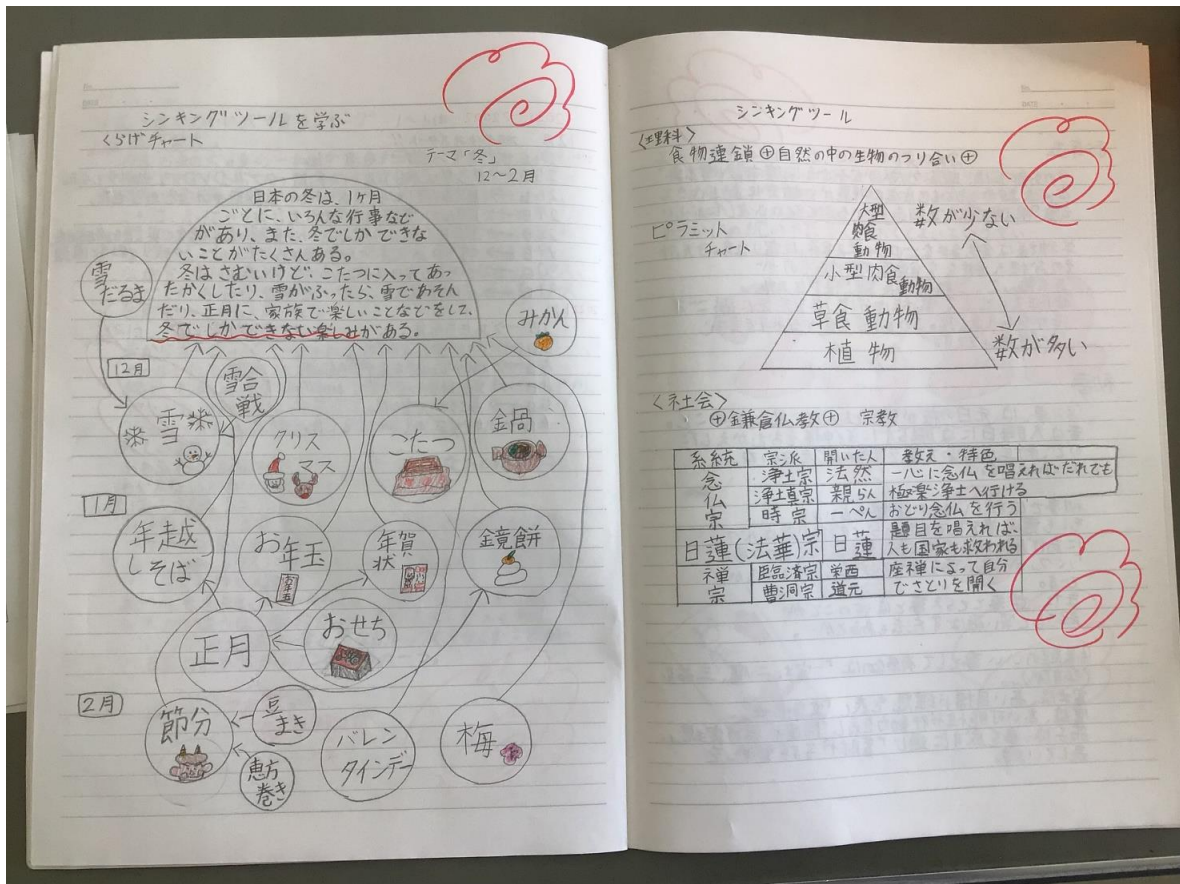 シンキングツールを学ぶ
くらげチャート
テーマ「冬」
12〜2月
日本の冬は、1ヶ月
ごとに、いろんな行事など
があり、また、冬でしかできな
いことがたくさんある。
冬はさむいけど、こたつに入ってあっ
たかくしたり、雪がふったら、雪であそん
だり、正月に、家族で楽しいことなどをして、
冬でしかできない楽しみがある。
雪
だるま
みかん
12月
雪合
戦
雪
クリス
マス
こたつ
鍋
1月
年越
しそば
お年玉
年賀
状
鏡餅
正月
おせち
2月
節分
豆
まき
恵方
巻き
バレン
タインデー
梅
シンキングツール
<理科>
食物連鎖 + 自然の中の生物のつり合い +
ピラミット
チャート
大型
肉食
動物
小型肉食動物
草食動物
植物
数が少ない
数が多い
<社会>
+鎌倉仏教+ 宗教
系統 宗派 開いた人 教え・特色
念仏宗 浄土宗 法然 一心に念仏を唱えればだれでも
浄土真宗 親らん 極楽浄土へ行ける
時宗 一ぺん おどり念仏を行う
日蓮(法華)宗 日蓮 題目を唱えれば、
人も国家も救われる
禅宗 臨済宗 栄西 座禅によって自分
曹洞宗 道元 でさとりを開く